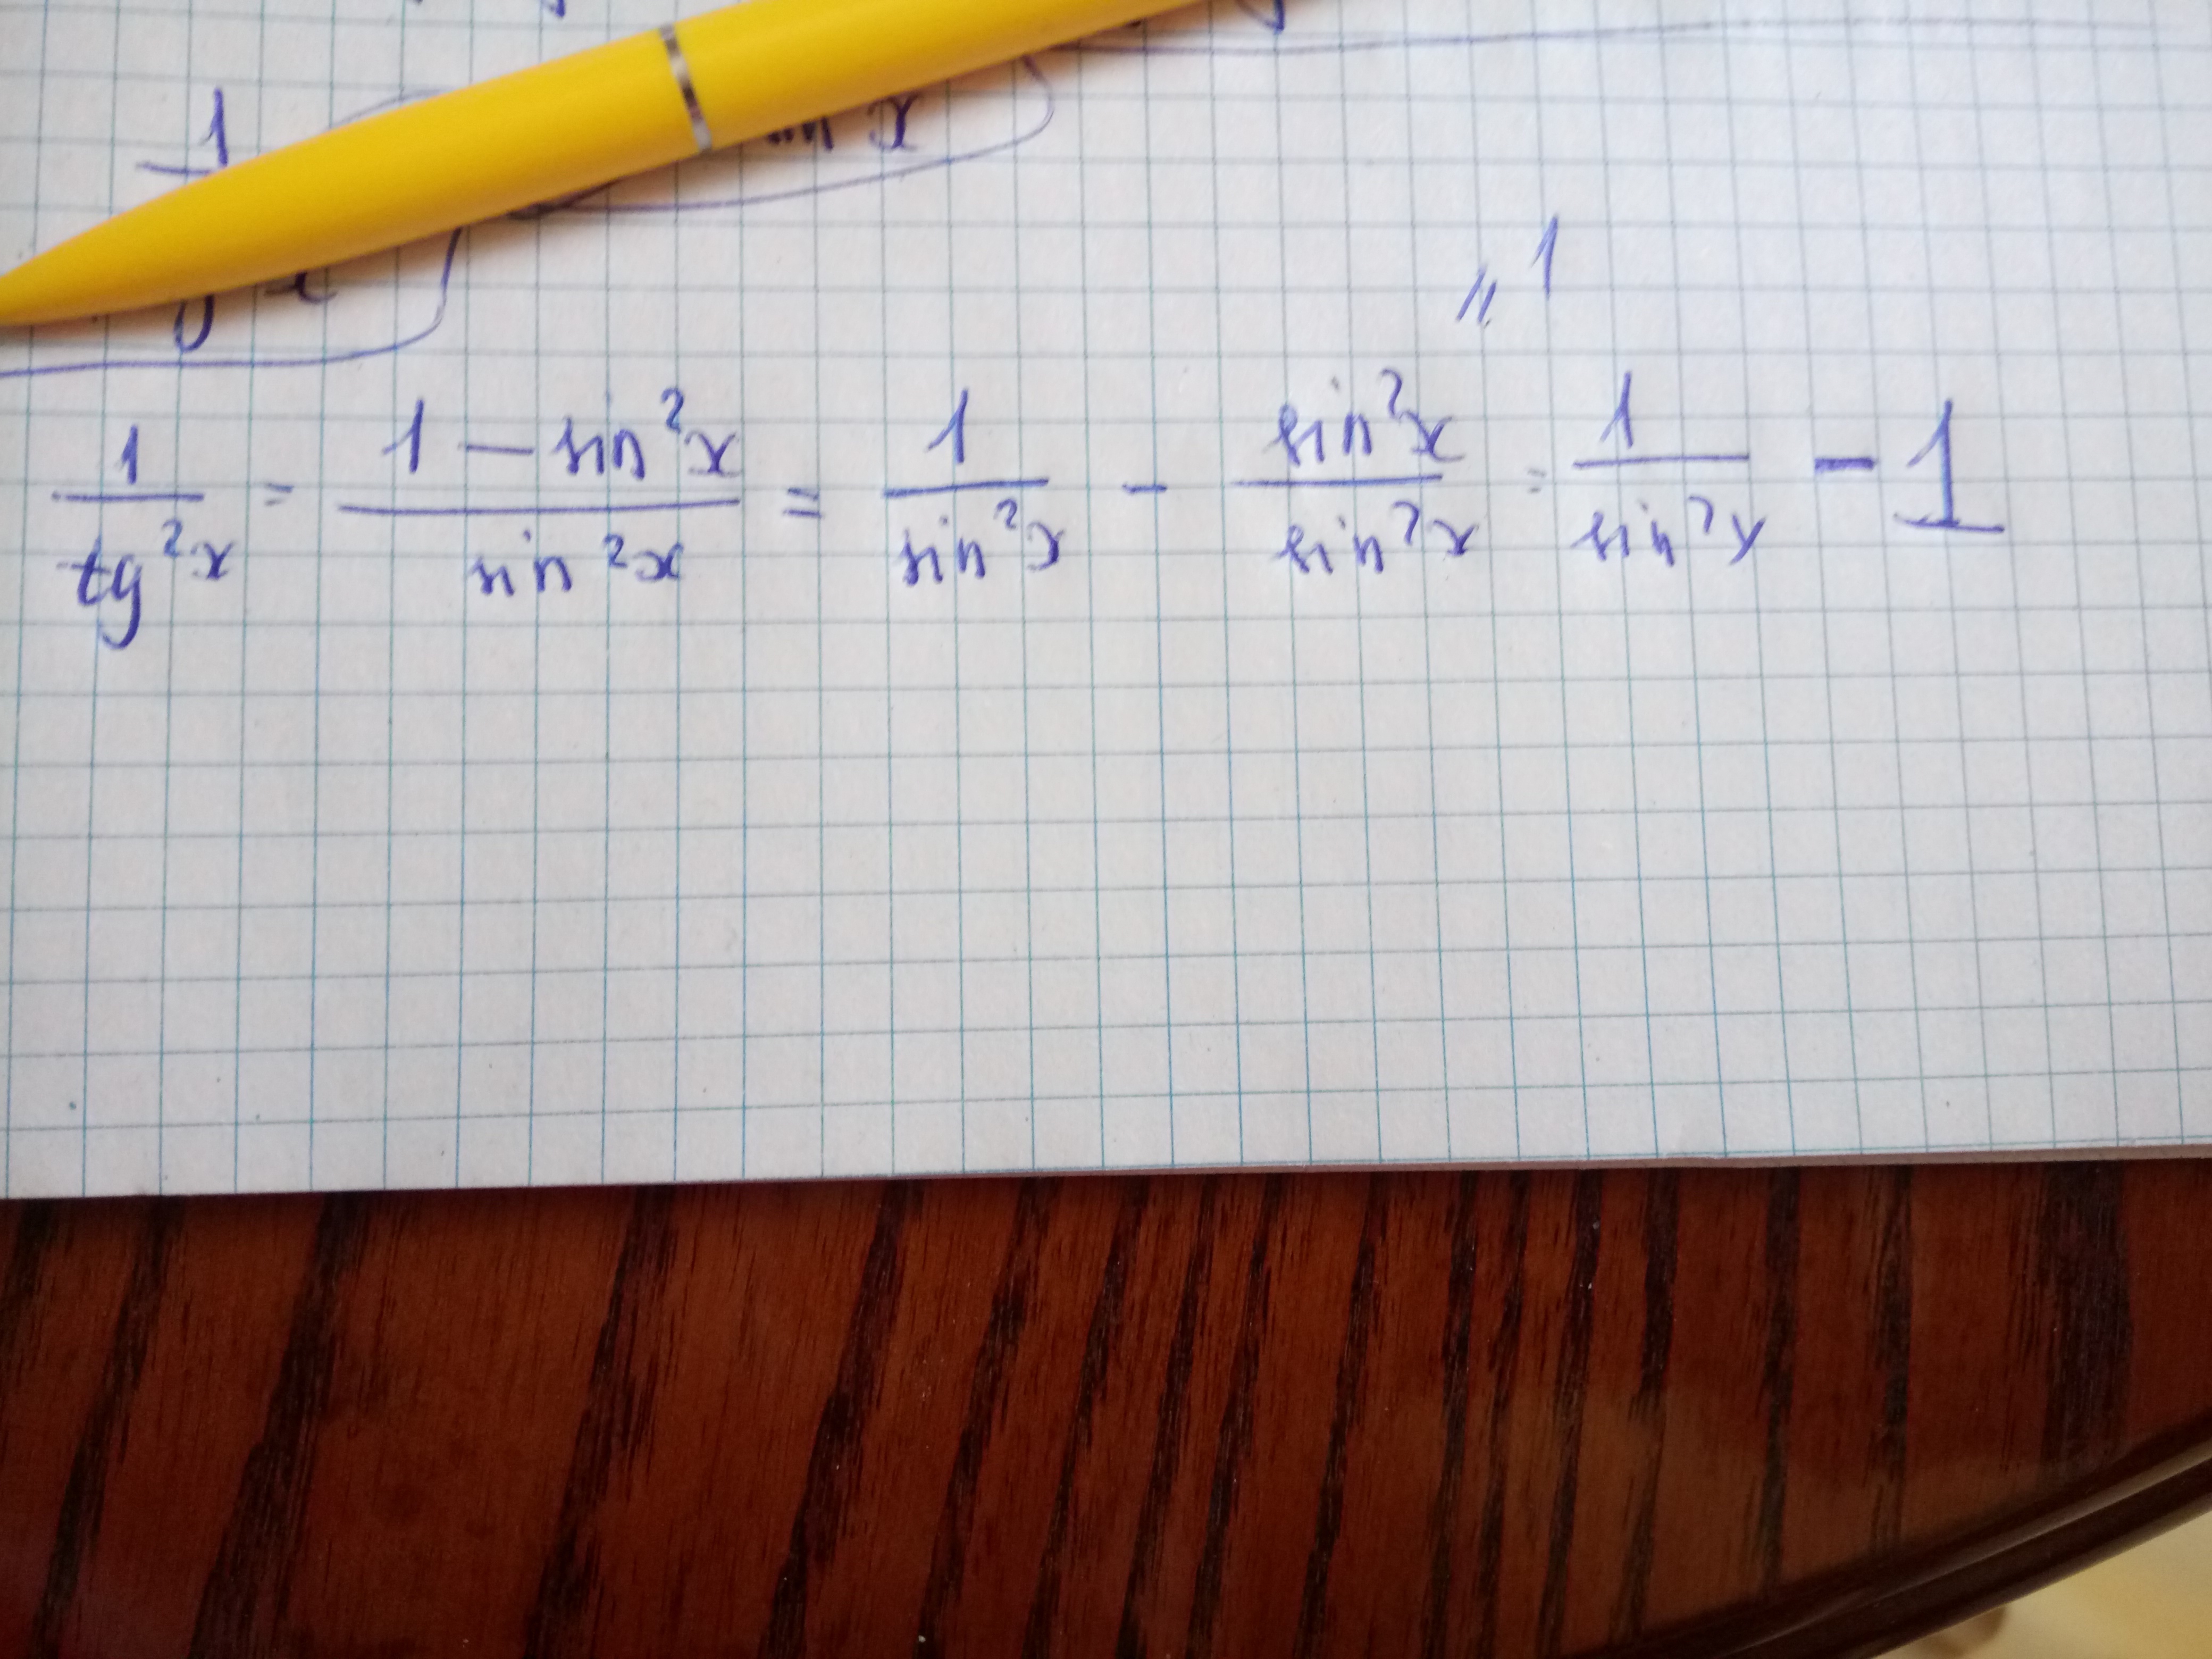 1
x
" 1
1/tg²x = (1 - sin²x)/sin²x = 1/sin²x - sin²x/sin²x = 1/sin²x - 1